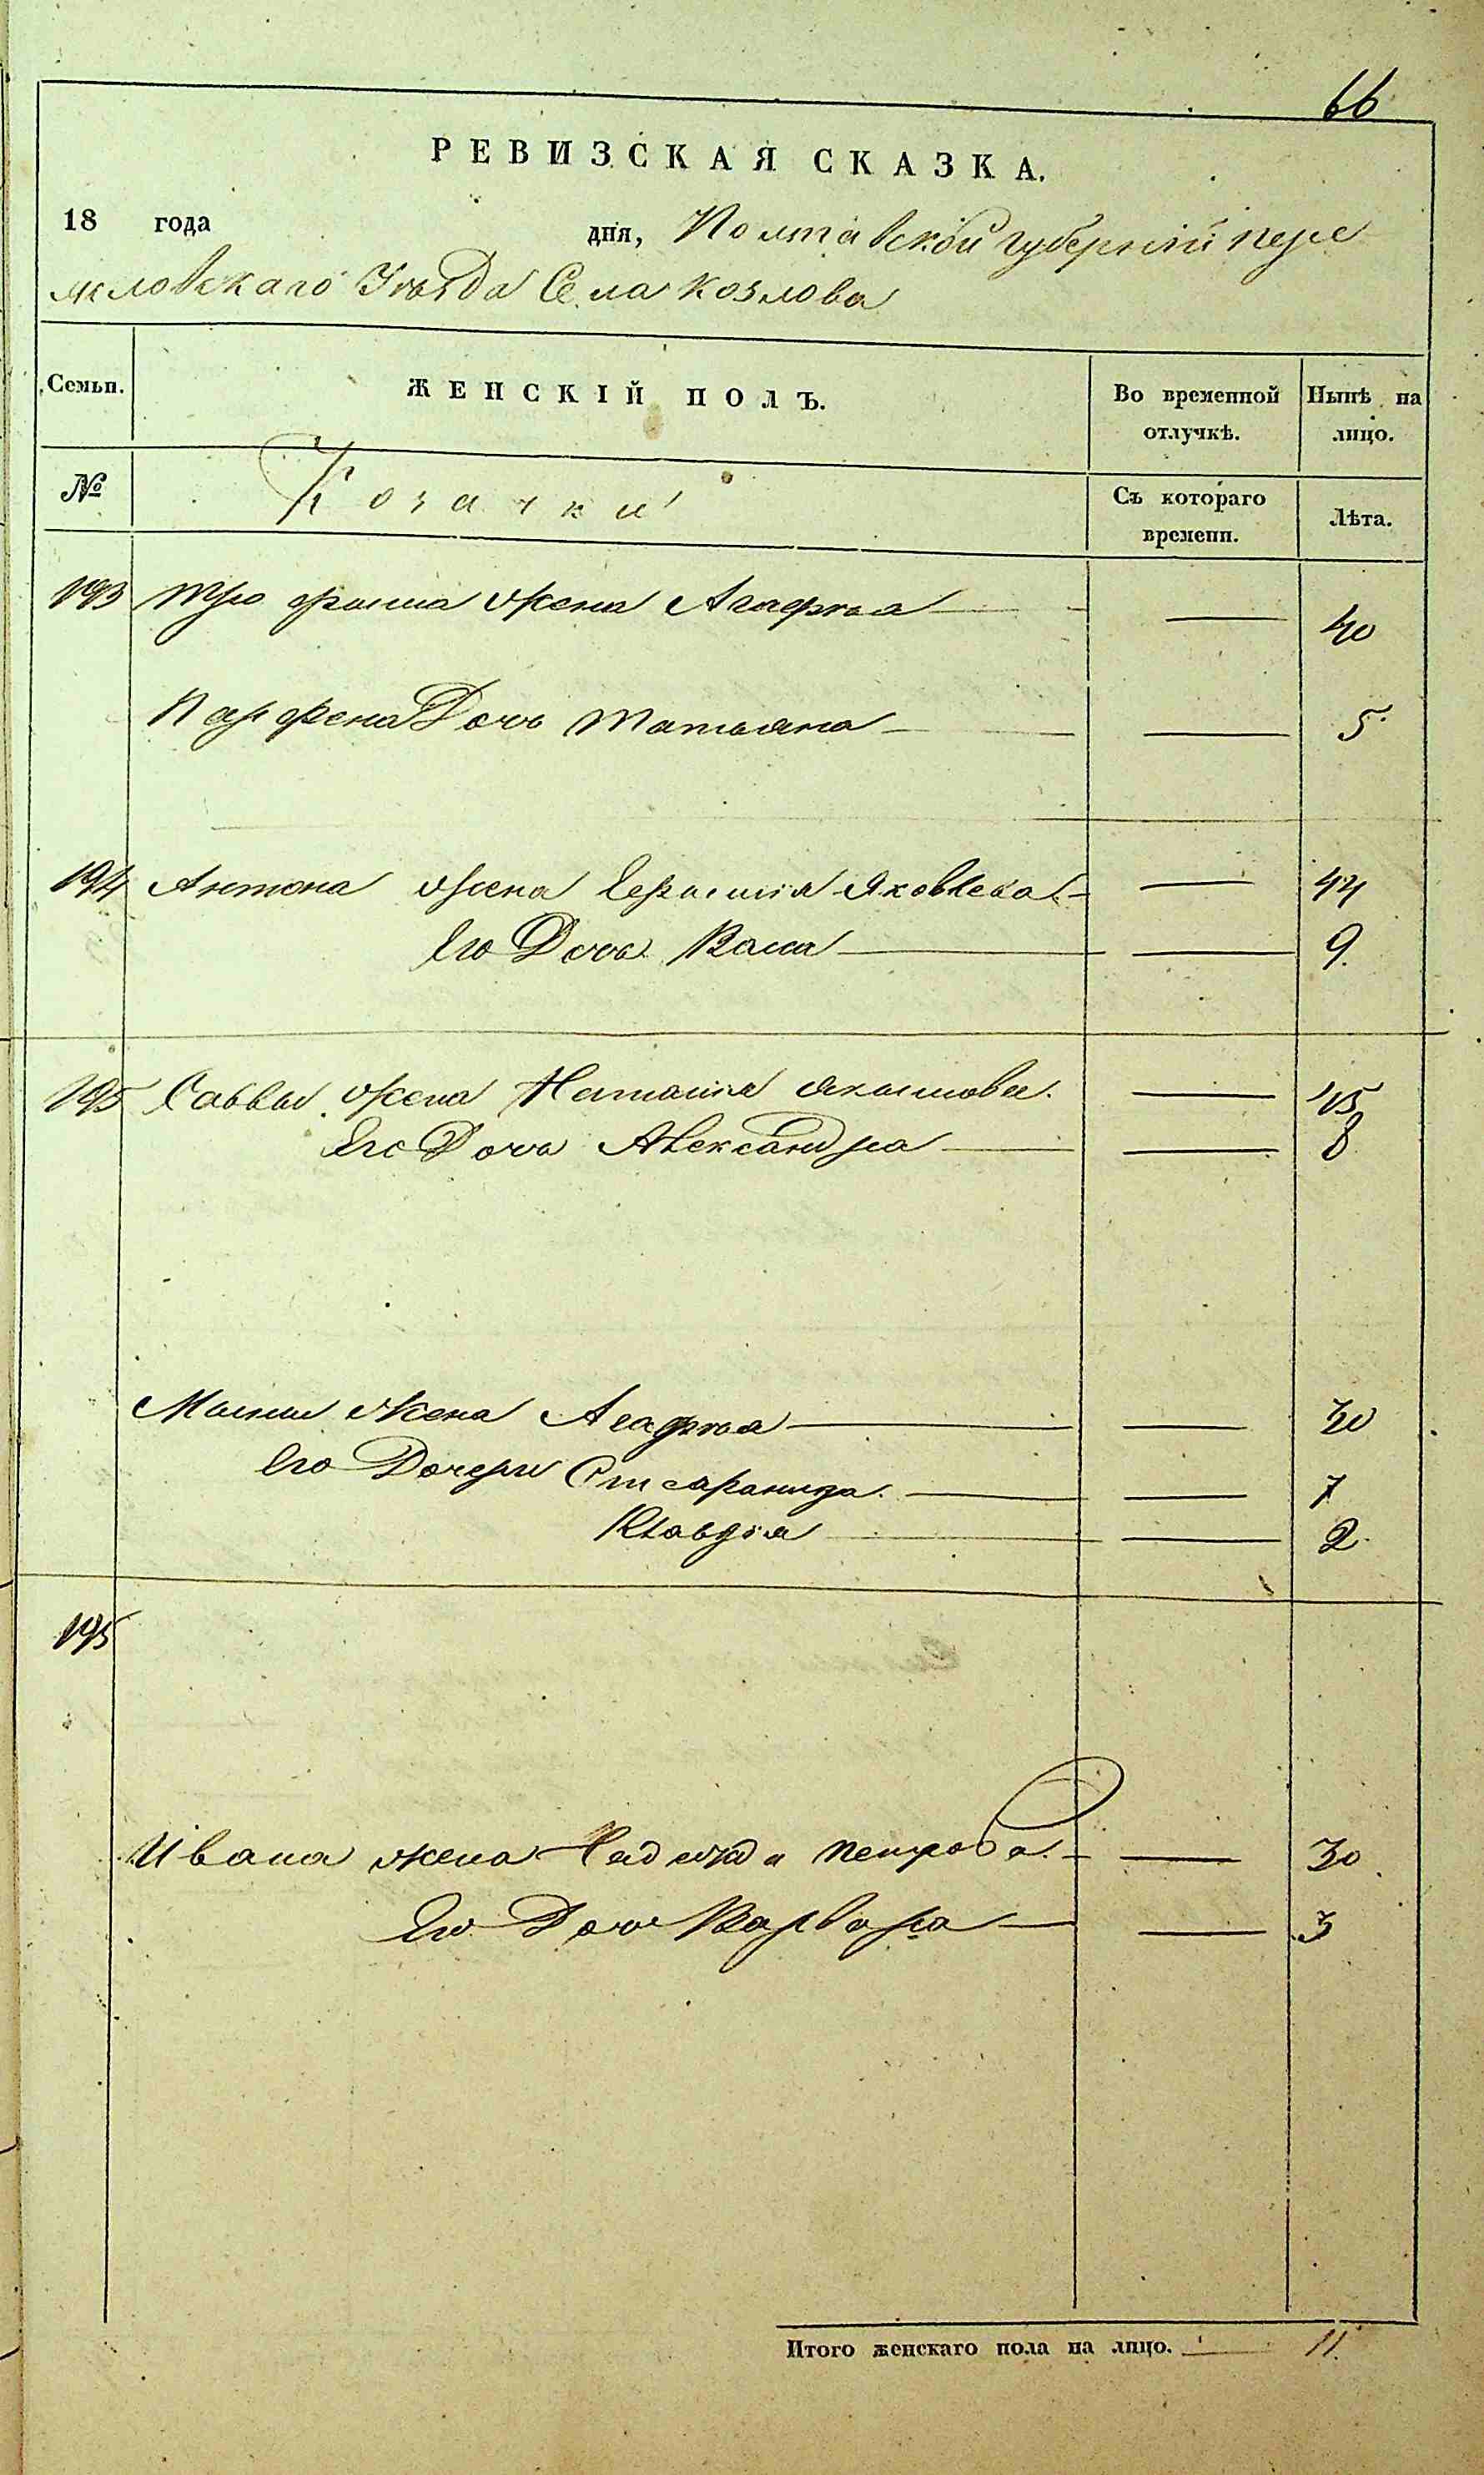 66
РЕВИЗСКАЯ СКАЗКА.
18 года дня, Полтавской губерній пере
яславскаго Уѣзда Села Козлова
Семьи. ЖЕНСКІЙ ПОЛЪ. Во временной отлучкѣ. Нынѣ на лицо.
№ Козачки Съ котораго времени. Лѣта.
193 Трофима жена Агафья — 40
Парфена Дочь Татьяна — 5
194 Антона жена Яковлева — 44
Его Дочь — 9.
195 Саввы жена Наталия — 45
Его Дочь Александра — 8
жена Агафья — 30
Его Дочери — 7
Клавдія — 2.
195
Ивана жена Надежда Петрова — 30
Его Дочь Варвара — 3
Итого женскаго пола на лицо. — 11.